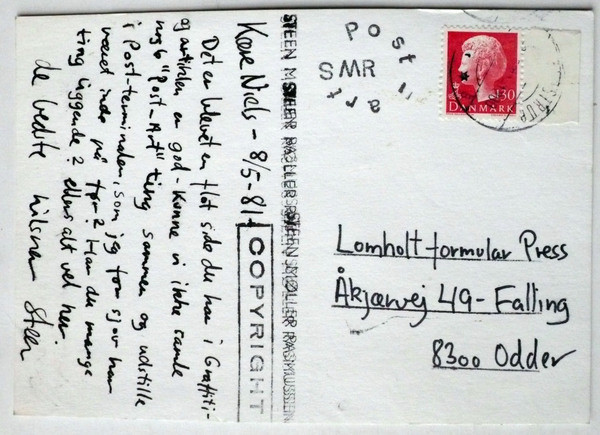 Kære Niels - 8/5-81
Det er blevet en flot side du har i Graffiti-
og artiklen er god - Kunne vi ikke samle
nogle "Post-Art" ting sammen og udstille
i Post-terminalen, som jeg for sjov har
været inde på før? Har du mange
ting liggende? ellers alt vel her
de bedste hilsner Steen
COPYRIGHT
STEEN MØLLER RASMUSSEN
Post
SMR
art
130
DANMARK
Lomholt formular Press
Åkjærvej 49 - Falling
8300 Odder